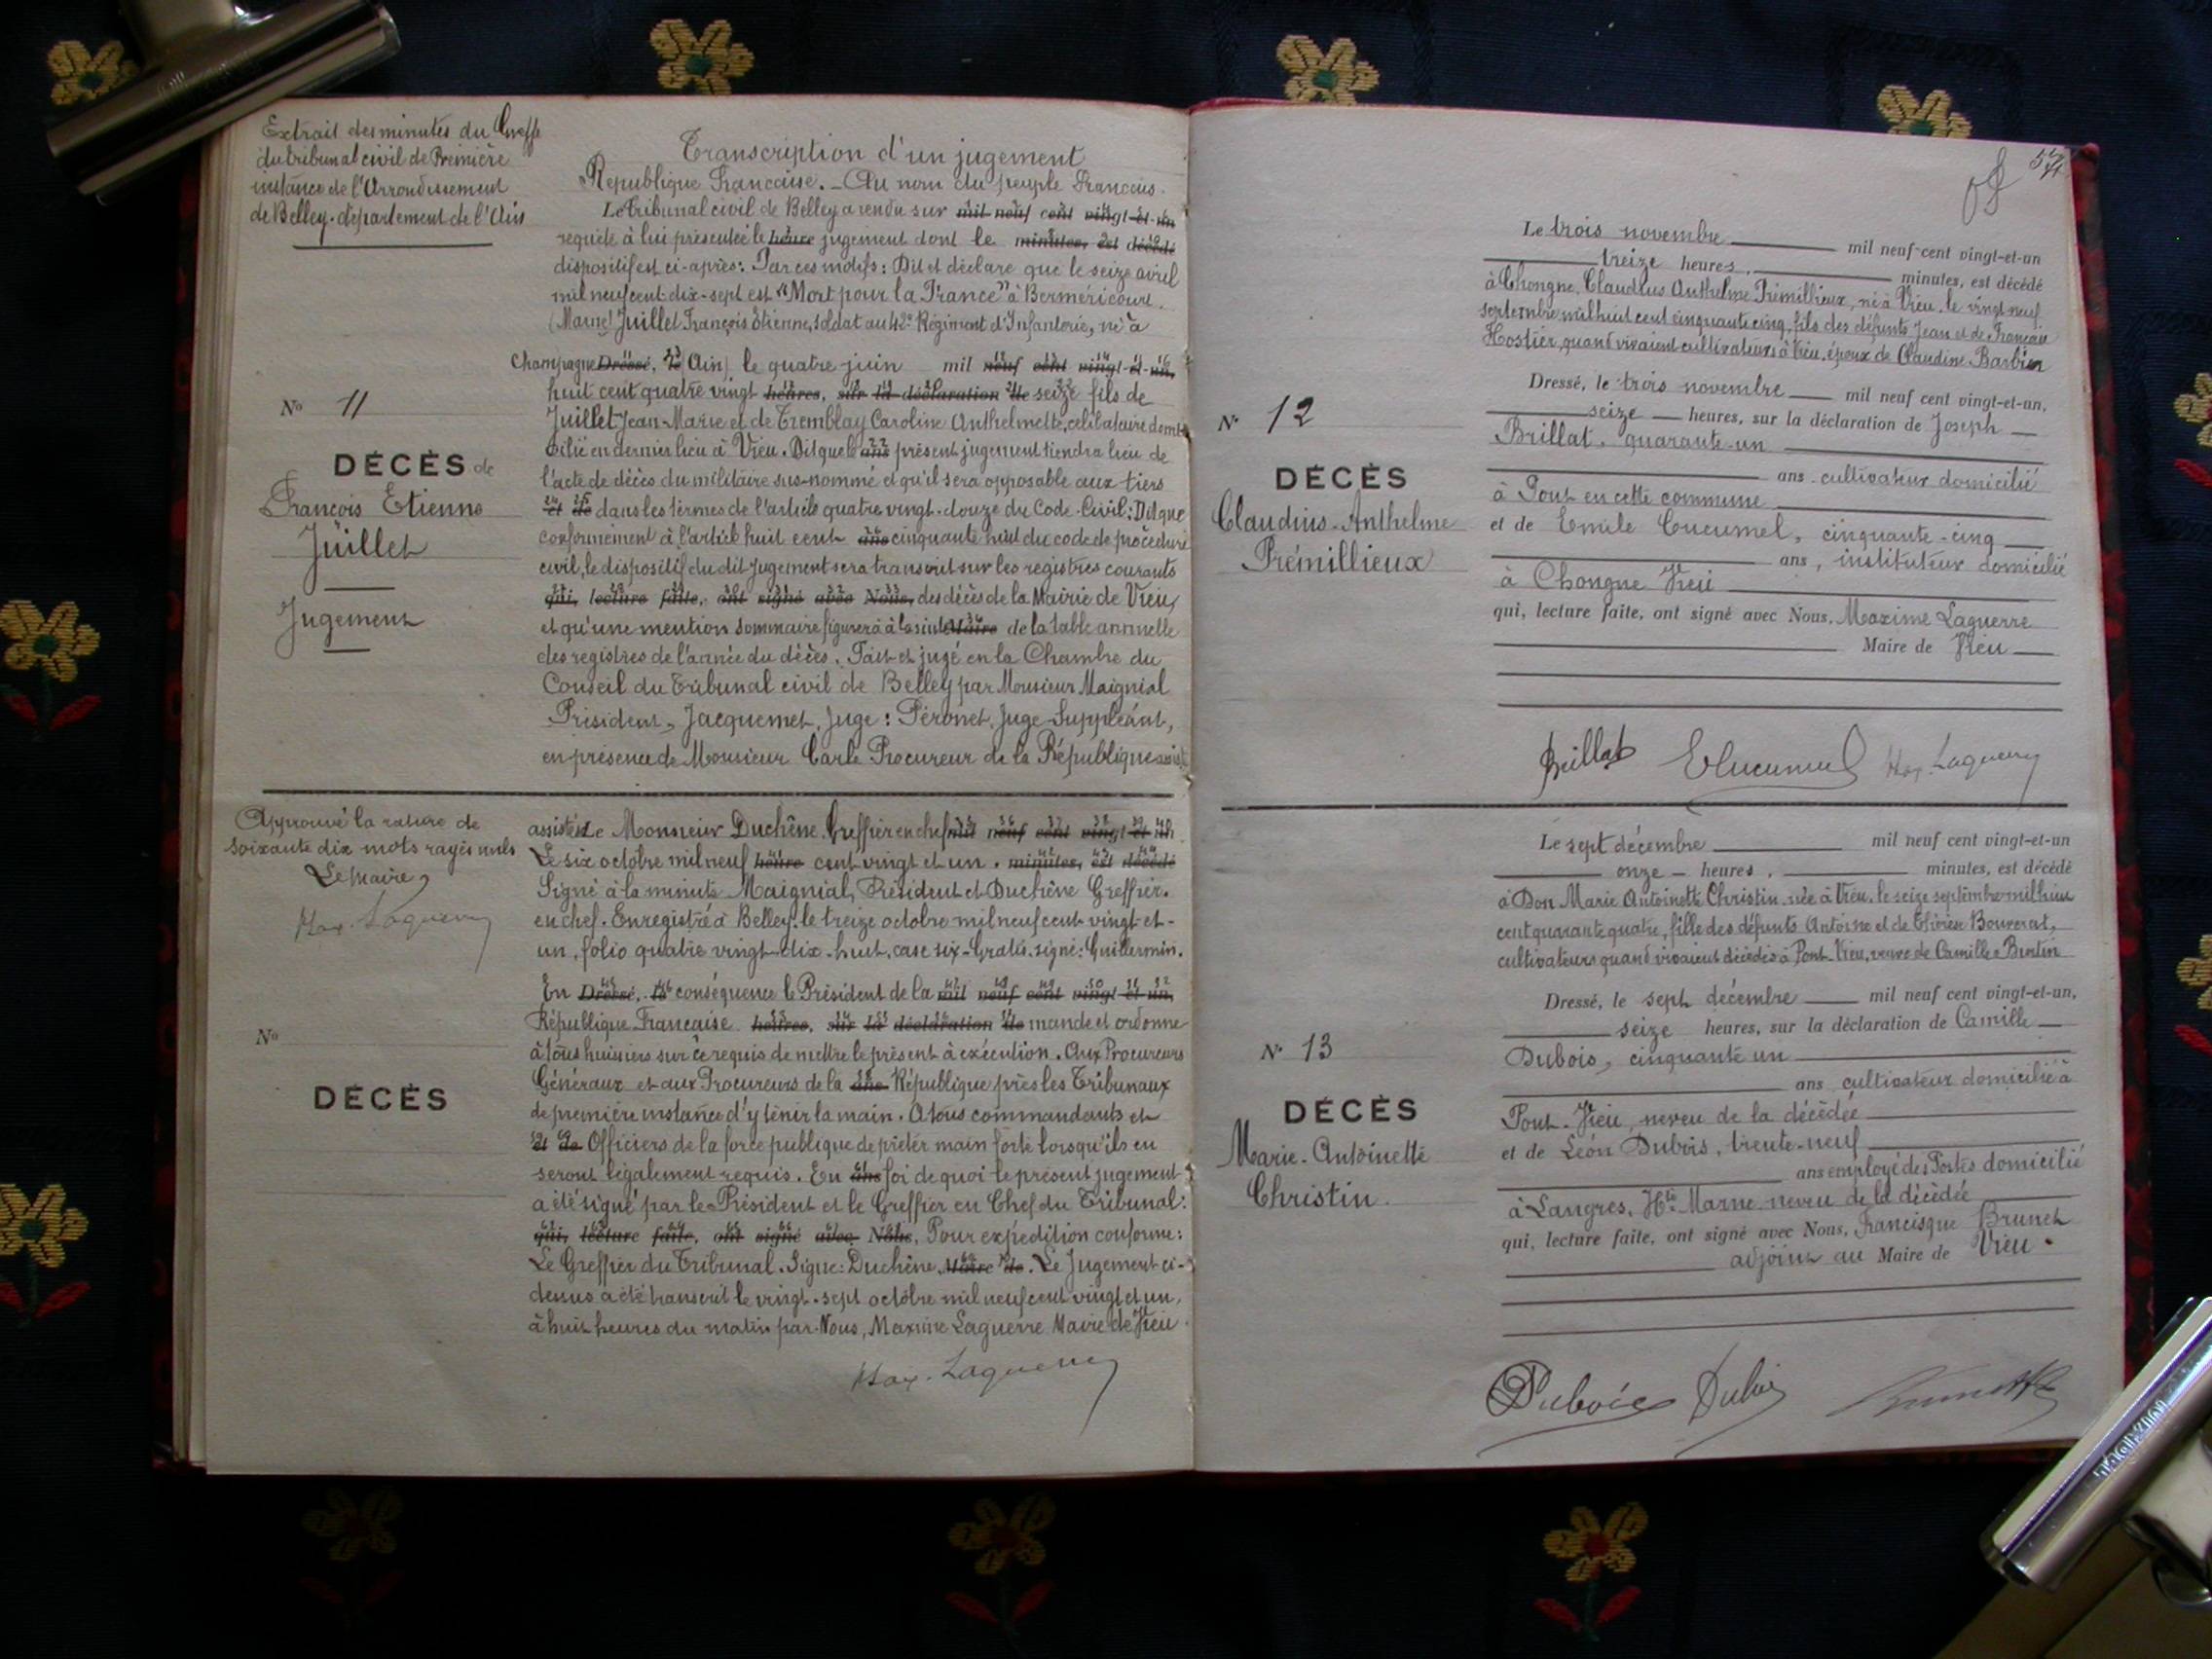 Extrait des minutes du Greffe
du tribunal civil de Première
instance de l'Arrondissement
de Belley. département de l'Ain
N° 11
DÉCÈS de
François Etienne
Juillet
Jugement
Transcription d'un jugement
République Française. _ Au nom du peuple Français.
Le tribunal civil de Belley a rendu sur mil neuf cent vingt-et-un
requête à lui présentée le heure jugement dont le minutes, est décédé
dispositif est ci-après: Par ces motifs: Dit et déclare que le seize avril
mil neuf cent dix-sept est "Mort pour la France" à Berméricourt.
(Marne) Juillet François Etienne, soldat au 42e Régiment d'Infanterie, né à
Champagne Dressé, le (Ain) le quatre juin mil neuf cent vingt-et-un,
huit cent quatre vingt heures, sur la déclaration de seize fils de
Juillet Jean-Marie et de Tremblay Caroline Anthelmette, célibataire domi-
cilié en dernier lieu à Vieu. Dit que le ans présent jugement tiendra lieu de
l'acte de décès du militaire sus-nommé et qu'il sera opposable aux tiers
et de dans les termes de l'article quatre vingt-douze du Code-Civil: Dit que
conformément à l'article huit cent ans cinquante huit du code de procédure
civil, le dispositif du dit jugement sera transcrit sur les registres courants
qui, lecture faite, ont signé avec Nous, des décès de la Mairie de Vieu,
et qu'une mention sommaire figurera à la suite Maire de la table annuelle
des registres de l'année du décès. Fait et jugé en la Chambre du
Conseil du Tribunal civil de Belley par Monsieur Maignial
Président, Jacquemet, Juge: Péronet, Juge-Suppléant,
en présence de Monsieur Carle Procureur de la République
Approuvé la rature de
soixante dix mots rayés nuls
Le Maire,
Max. Laguerre
N°
DÉCÈS
assisté de Monsieur Duchêne. Greffier en chef mil neuf cent vingt-et-un
Le six octobre mil neuf heure cent vingt et un. minutes, est décédé
Signé à la minute Maignial, Président et Duchêne Greffier.
en chef. Enregistré à Belley, le treize octobre mil neuf cent vingt-et-
un, folio quatre vingt-dix-huit, case six-Gratis. signé: Guillermin.
En Dressé, le conséquence le Président de la mil neuf cent vingt-et-un,
République Française heures, sur la déclaration de mande et ordonne
à tous huissiers sur ce requis de mettre le présent à exécution. Aux Procureurs
Généraux et aux Procureurs de la ans République près les Tribunaux
de première instance d'y tenir la main. A tous commandants et
et de Officiers de la force publique de prêter main forte lorsqu'ils en
seront légalement requis. En ans foi de quoi le présent jugement
a été signé par le Président et le Greffier en Chef du Tribunal:
qui, lecture faite, ont signé avec Nous, Pour expédition conforme:
Le Greffier du Tribunal. Signé: Duchêne Maire de. Le Jugement ci-
dessus a été transcrit le vingt-sept octobre mil neuf cent vingt et un,
à huit heures du matin par Nous, Maxime Laguerre Maire de Vieu
Max. Laguerre
57
N° 12
DÉCÈS
Claudius-Anthelme
Prémillieux
Le trois novembre mil neuf cent vingt-et-un
treize heures, minutes, est décédé
à Chongne, Claudius Anthelme Prémillieux, né à Vieu, le vingt neuf
septembre mil huit cent cinquante cinq, fils des défunts Jean et de Françoise
Hostier, quand vivaient cultivateurs à Vieu, époux de Claudine Barbier
Dressé, le trois novembre mil neuf cent vingt-et-un,
seize heures, sur la déclaration de Joseph
Brillat, quarante-un
ans cultivateur domicilié
à Pont en cette commune
et de Emile Cucumel, cinquante-cinq
ans, instituteur domicilié
à Chongne Vieu
qui, lecture faite, ont signé avec Nous, Maxime Laguerre
Maire de Vieu
Brillat ECucumel Max. Laguerre
N° 13
DÉCÈS
Marie-Antoinette
Christin.
Le sept décembre mil neuf cent vingt-et-un
onze heures, minutes, est décédé
à Don Marie Antoinette Christin, née à Vieu, le seize septembre mil huit
cent quarante quatre, fille des défunts Antoine et de Thérèse Bouverat,
cultivateurs quand vivaient décédés à Pont-Vieu, veuve de Camille Burtin
Dressé, le sept décembre mil neuf cent vingt-et-un,
seize heures, sur la déclaration de Camille
Dubois, cinquante un
ans cultivateur domicilié à
Pont-Vieu, neveu de la décédée
et de Léon Dubois, trente-neuf
ans employé des Postes domicilié
à Langres, Hte Marne neveu de la décédée
qui, lecture faite, ont signé avec Nous, Francisque Brunet
adjoint au Maire de Vieu.
Dubois Dubois